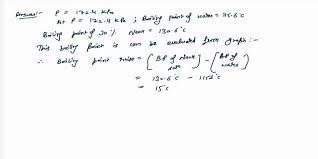 Answer:- P = 172.4 kPa
At P = 172.4 kPa ; Boiling point of water = 115.6°c
Boiling point of 30% NaOH = 130.6°c
This boiling point is can be evaluated from graph :-
∴ Boiling point raise = [BP of NaOH] - [BP of water]
= 130.6°c - 115.6°c
= 15°c